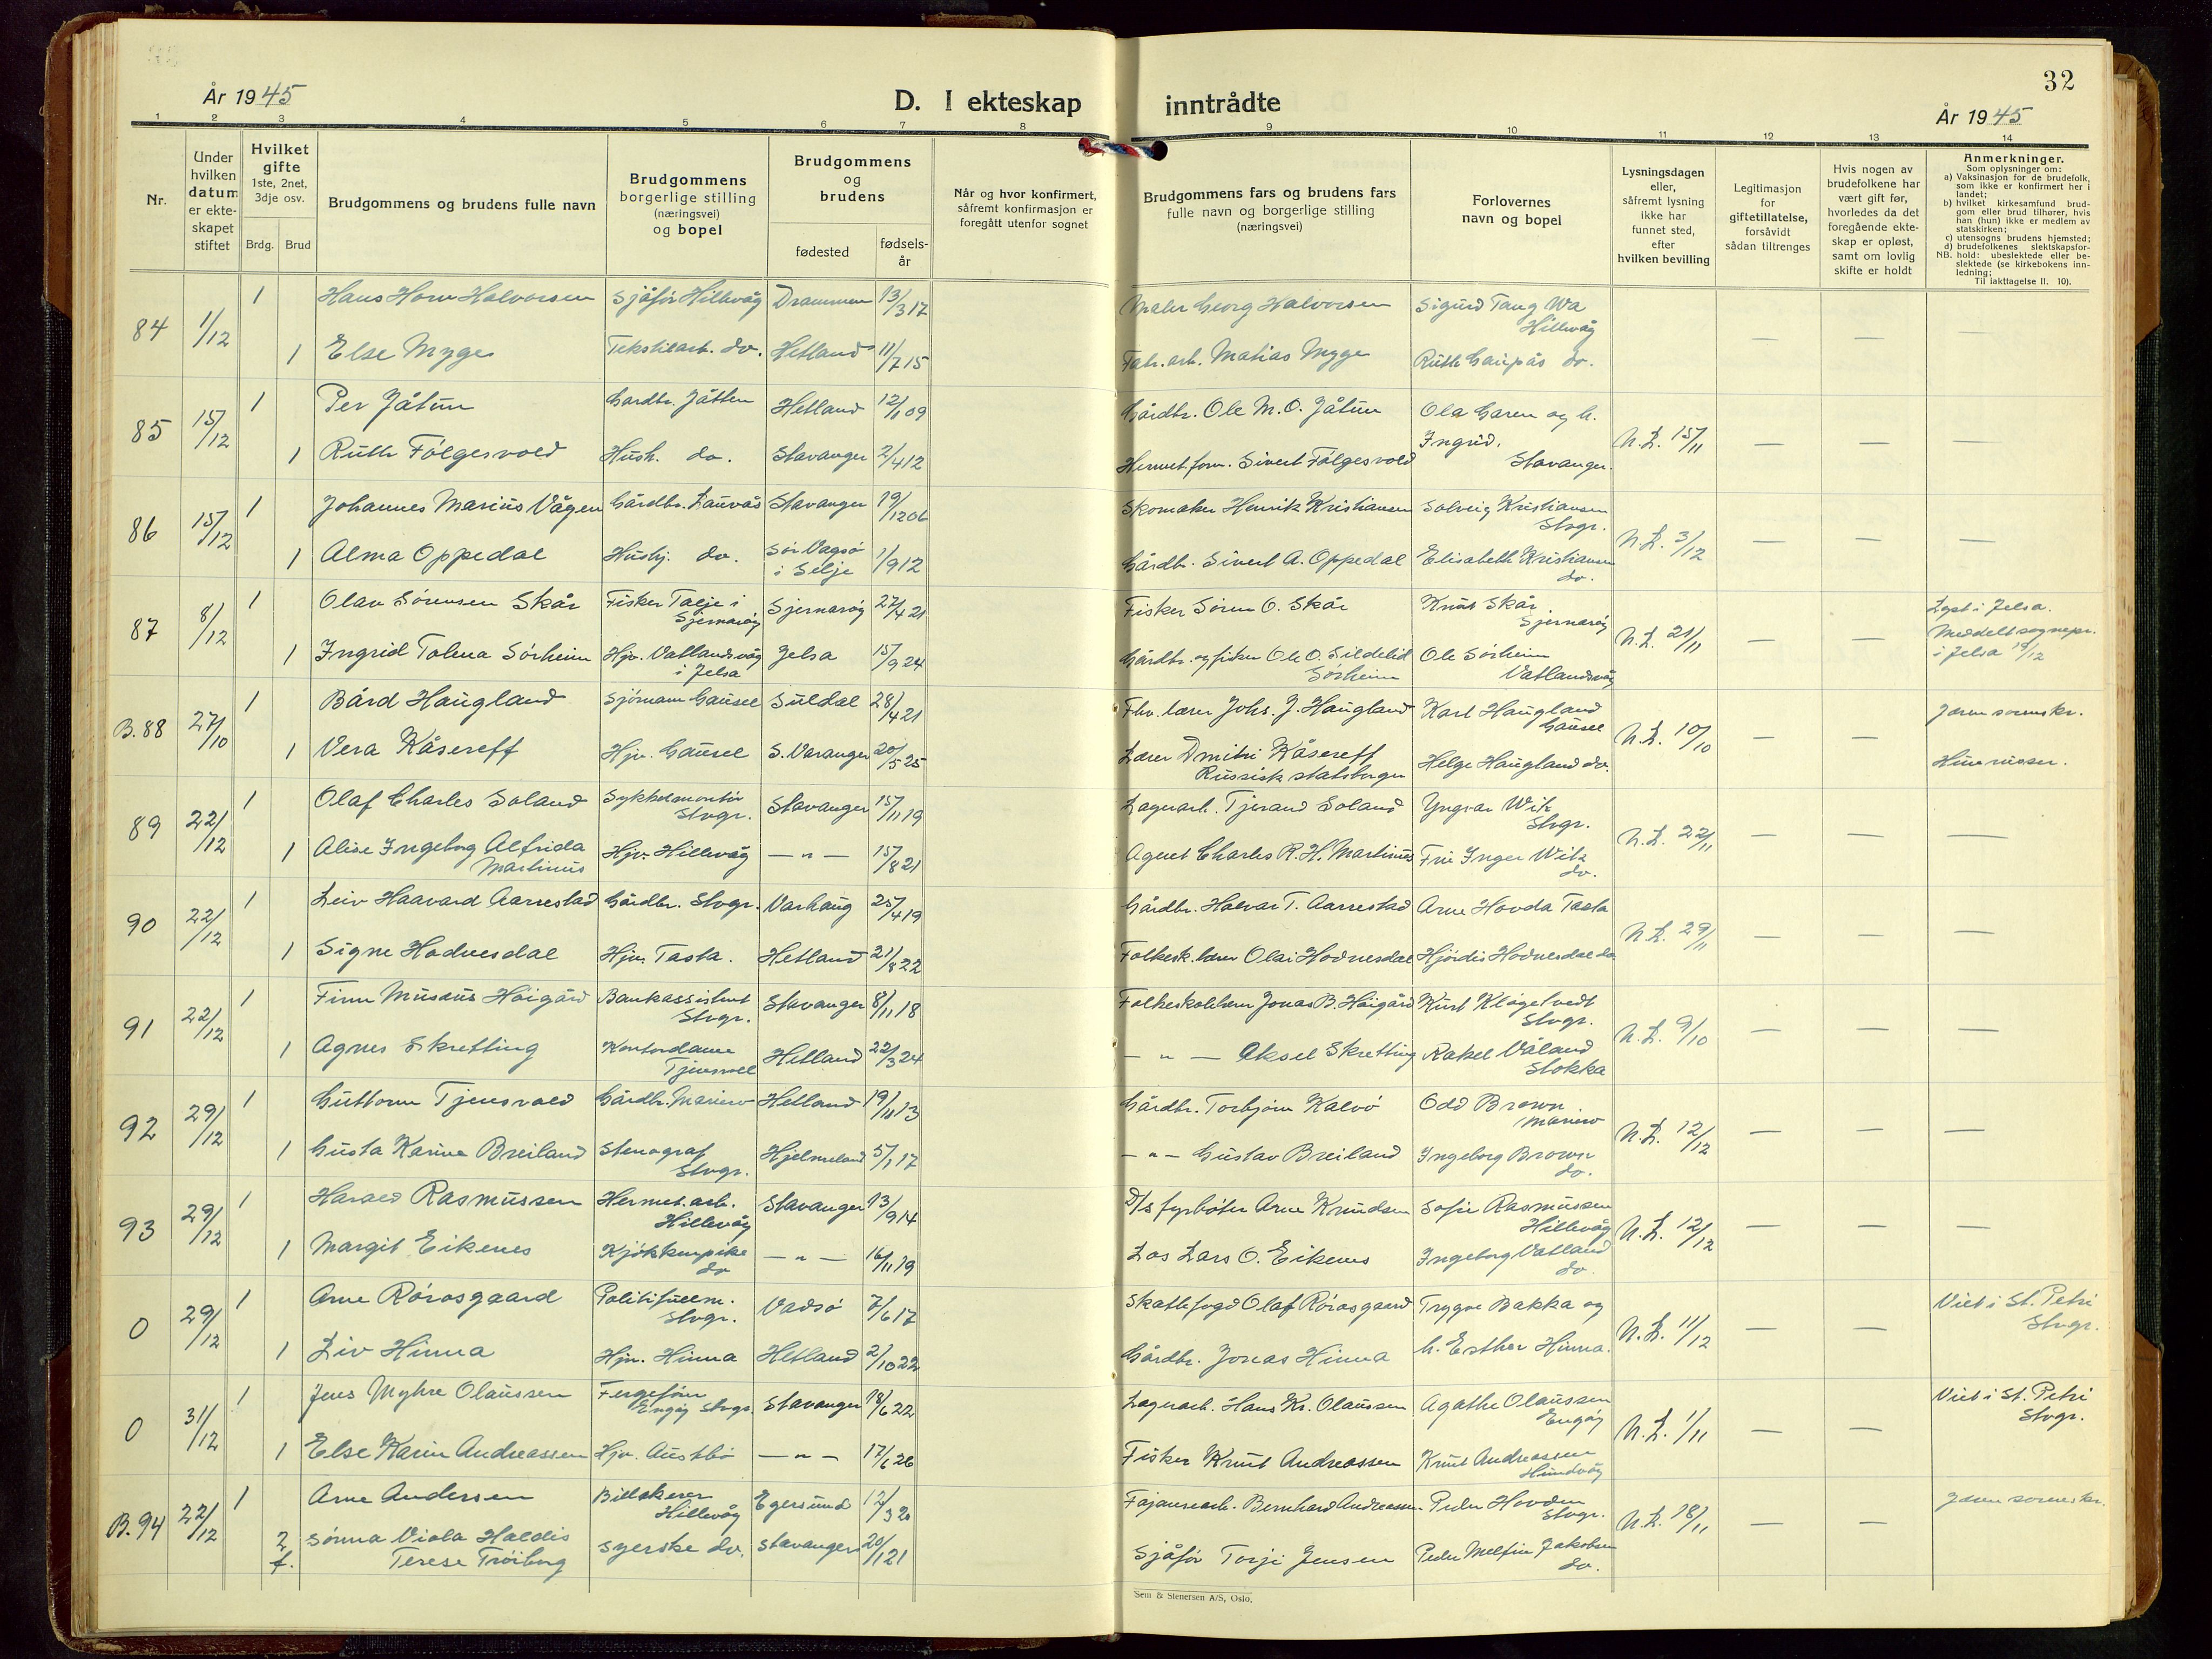 32
År 1945
D. I ekteskap
inntrådte
År 1945
1 2 3 4 5 6 7 8 9 10 11 12 13 14
Nr.
Under
hvilken
datum
er ekte-
skapet
stiftet
Hvilket
gifte
1ste, 2net,
3dje osv.
Brdg. Brud
Brudgommens og brudens fulle navn
Brudgommens
borgerlige stilling
(næringsvei)
og bopel
Brudgommens
og
brudens
fødested
fødsels-
år
Når og hvor konfirmert,
såfremt konfirmasjon er
foregått utenfor sognet
Brudgommens fars og brudens fars
fulle navn og borgerlige stilling
(næringsvei)
Forlovernes
navn og bopel
Lysningsdagen
eller,
såfremt lysning
ikke har
funnet sted,
efter
hvilken bevilling
Legitimasjon
for
giftetillatelse,
forsåvidt
sådan tiltrenges
Hvis nogen av
brudefolkene har
vært gift før,
hvorledes da det
foregående ekte-
skap er opløst,
samt om lovlig
skifte er holdt
Anmerkninger.
Som oplysninger om:
a) Vaksinasjon for de brudefolk,
som ikke er konfirmert her i
landet;
b) hvilket kirkesamfund brud-
gom eller brud tilhører, hvis
han (hun) ikke er medlem av
statskirken;
c) utensogns brudens hjemsted;
d) brudefolkenes slektskapsfor-
NB. hold: ubeslektede eller be-
slektede (se kirkebokens inn-
ledning;
Til iakttagelse II. 10).
84 1/12 1 Hans Horn Halvorsen Sjåfør Hillevåg Drammen 13/3 17 Maler Georg Halvorsen Sigurd Tang Wa
Hillevåg — — —
1 Else Mygge Tekstilarb. do. Hetland 11/7 15 Fabr. arb. Matias Mygge Ruth Gaupås do.
85 15/12 1 Per Jåtun Gardbr. Jåtten Hetland 12/1 09 Gårdbr. Ole M. O. Jåtun Ola Garen og h.
Ingrid. N.L. 15/11 — — —
1 Ruth Følgesvold Hush. do. Stavanger 2/4 12 Hermet. form. Sivert Følgesvold Stavanger.
86 15/12 1 Johannes Marius Vågen Gårdbr. Lauvås Stavanger 19/12 06 Skomaker Henrik Kristiansen Solveig Kristiansen
Stvgr. N.L. 3/12 — — —
1 Alma Oppedal Husbj. do. Sør Vagsø
i Selje 1/9 12 Gårdbr. Sivert A. Oppedal Elisabeth Kristiansen
do.
87 8/12 1 Olav Sørensen Skår Fisker Talje i
Sjernarøy Sjernarøy 27/4 21 Fisker Søren O. Skår Knut Skår
Sjernarøy N.L. 21/11 — — Lyst i Jelsa.
Meddelt sognepr.
i Jelsa 19/12
1 Ingrid Tolena Sørheim Hjv. Vatlandsvåg
i Jelsa Jelsa 15/9 24 Gårdbr. og fisker Ole O. Sildelid
Sørheim Ole Sørheim
Vatlandsvåg
B. 88 27/10 1 Bård Haugland Sjømann Gausel Suldal 28/4 21 Fhv. lærer Johs. J. Haugland Karl Haugland
Gausel N.L. 10/10 — — Jæren sorenskr.
1 Vera Kåsereff Hjv. Gausel S. Varanger 20/5 25 Lærer Dmitri Kåsereff
Russisk statsborger Helge Haugland do. Hun russer.
89 22/12 1 Olaf Charles Soland Sykkelmontør
Stvgr. Stavanger 15/11 19 Lagerarb. Tjerand Soland Yngvar Wik
Stvgr. N.L. 22/11 — — —
1 Alise Ingeborg Alfrida
Martinius Hjv. Hillevåg — „ — 15/8 21 Agent Charles R. H. Martinius Fru Inger Wik
do.
90 22/12 1 Leiv Haavard Aarrestad Gårdbr. Stvgr. Varhaug 25/4 19 Gårdbr. Halvar T. Aarrestad Arne Hovda Tasta N.L. 29/11 — — —
1 Signe Hodnesdal Hjv. Tasta. Hetland 21/8 22 Folkesk. lærer Olai Hodnesdal Hjørdis Hodnesdal do.
91 22/12 1 Finn Musæus Høigård Bankassistent
Stvgr. Stavanger 8/11 18 Folkeskolelærer Jonas B. Høigård Kurt Klågetvedt
Stvgr. N.L. 9/10 — — —
1 Agnes Skretting Kontordame
Tjensvoll Hetland 22/3 24 — „ — Aksel Skretting Rakel Våland
Stokka
92 29/12 1 Guttorm Tjensvold Gårdbr. Mariero Hetland 19/11 13 Gårdbr. Torbjørn Kalvø Odd Brown
Mariero N.L. 12/12 — — —
1 Gusta Karine Breiland Stenograf
Stvgr. Hjelmeland 5/1 17 — „ — Gustav Breiland Ingeborg Brown
do.
93 29/12 1 Harald Rasmussen Hermet. arb.
Hillevåg Stavanger 13/9 14 D/s fyrbøter Arne Knudsen Sofie Rasmussen
Hillevåg N.L. 12/12 — — —
1 Margit Eikenes Kjøkkenpike
do — „ — 16/11 19 Los Lars O. Eikenes Ingeborg Vatland
do.
0 29/12 1 Arne Rørosgaard Politifullm.
Stvgr. Vadsø 7/6 17 Skattefogd Olaf Rørosgaard Trygve Bakka og N.L. 11/12 — — Viet i St. Petri
Stvgr.
1 Liv Hinna Hjv. Hinna Hetland 2/10 22 Gårdbr. Jonas Hinna h. Esther Hinna.
0 31/12 1 Jens Myhre Olaussen Fergefører
Engøy Stvgr. Stavanger 18/6 22 Lagerarb. Hans Kr. Olaussen Agathe Olaussen
Engøy N.L. 1/11 — — Viet i St. Petri
Stvgr.
1 Else Karin Andreassen Hjv. Austbø — „ — 17/6 26 Fisker Knut Andreassen Knut Andreassen
Hundvåg
B. 94 22/12 1 Arne Andersen Billakerer
Hillevåg Egersund 12/3 20 Fajansearb. Bernhard Andreassen Peder Hovden
Stvgr. N.L. 18/11 — — Jæren sorenskr.
2 f. Sønna Viola Haldis
Terese Trøiborg Syerske do. Stavanger 20/1 21 Sjåfør Torje Jensen Peder Jakobsen
do.
Sem & Stenersen A/S, Oslo.